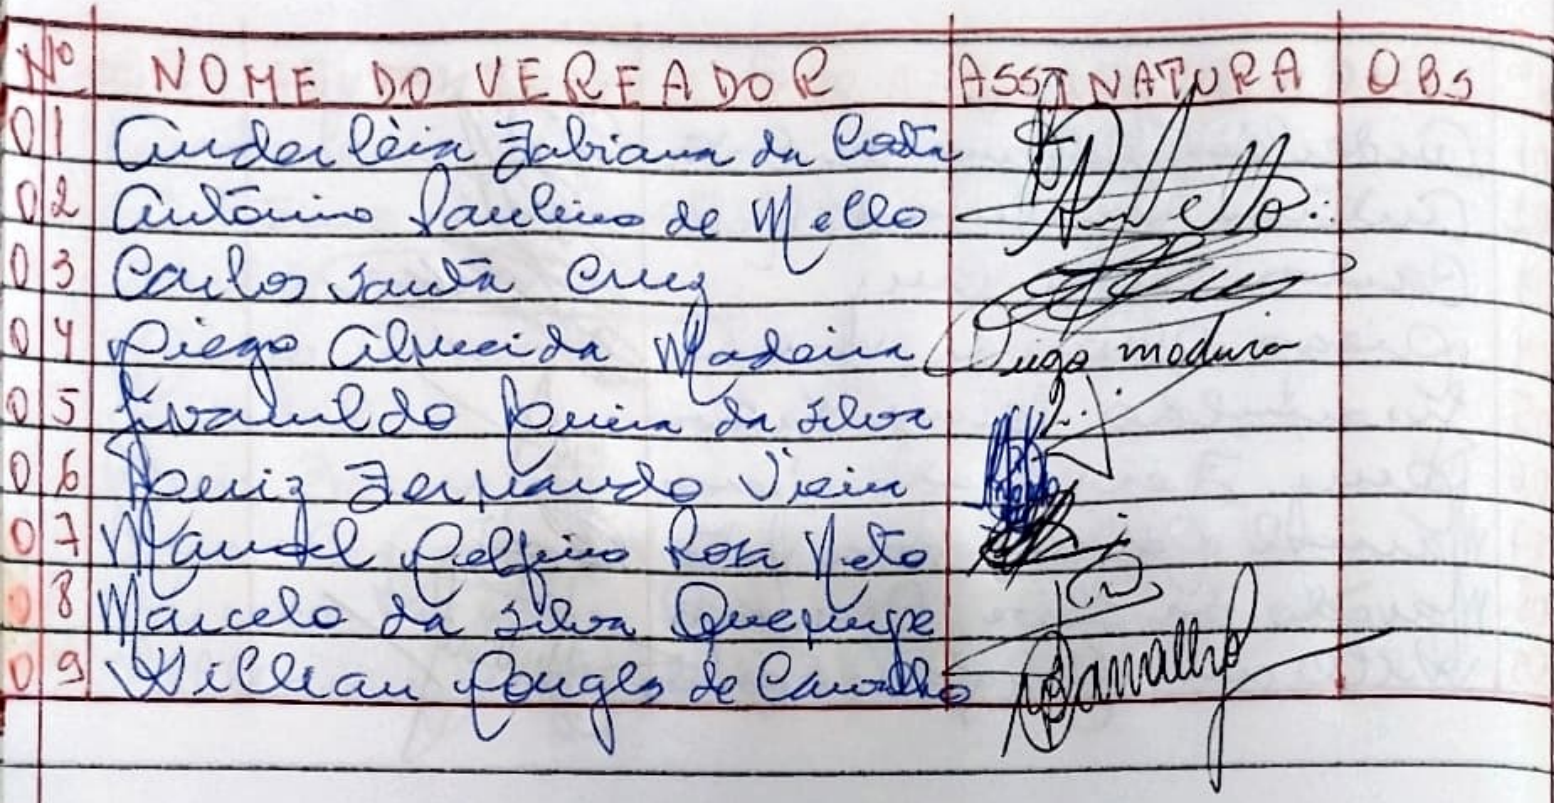 Nº NOME DO VEREADOR ASSINATURA OBS
01 Anderléia Fabiana da Costa
02 Antônio Paulino de Mello A P Mello
03 Carlos Santa Cruz
04 Diego Almeida Madeira Diego madeira
05 Jivanildo Pereira da Silva
06 Luiz Fernando Vieira
07 Manoel Delfino Rosa Neto
08 Marcelo da Silva Quespe
09 Willian Douglas de Carvalho Carvalho